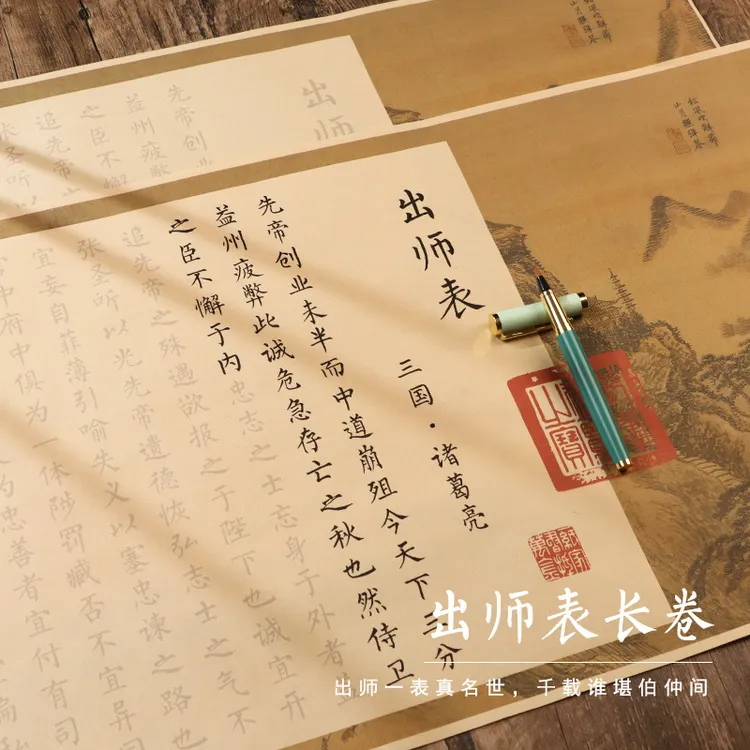 出师
先帝创业
益州疲弊
之臣不懈
追先帝
张圣听以
出师表
三国·诸葛亮
先帝创业未半而中道崩殂今天下三分
益州疲弊此诚危急存亡之秋也然侍卫
之臣不懈于内忠志之士忘身于外者
追先帝之殊遇欲报之于陛下也诚宜开
张圣听以光先帝遗德恢弘志士之气不
宜妄自菲薄引喻失义以塞忠谏之路也
中府中俱为一体陟罚臧否不宜异同
为忠善者宜付有司
出师表长卷
出师一表真名世，千载谁堪伯仲间